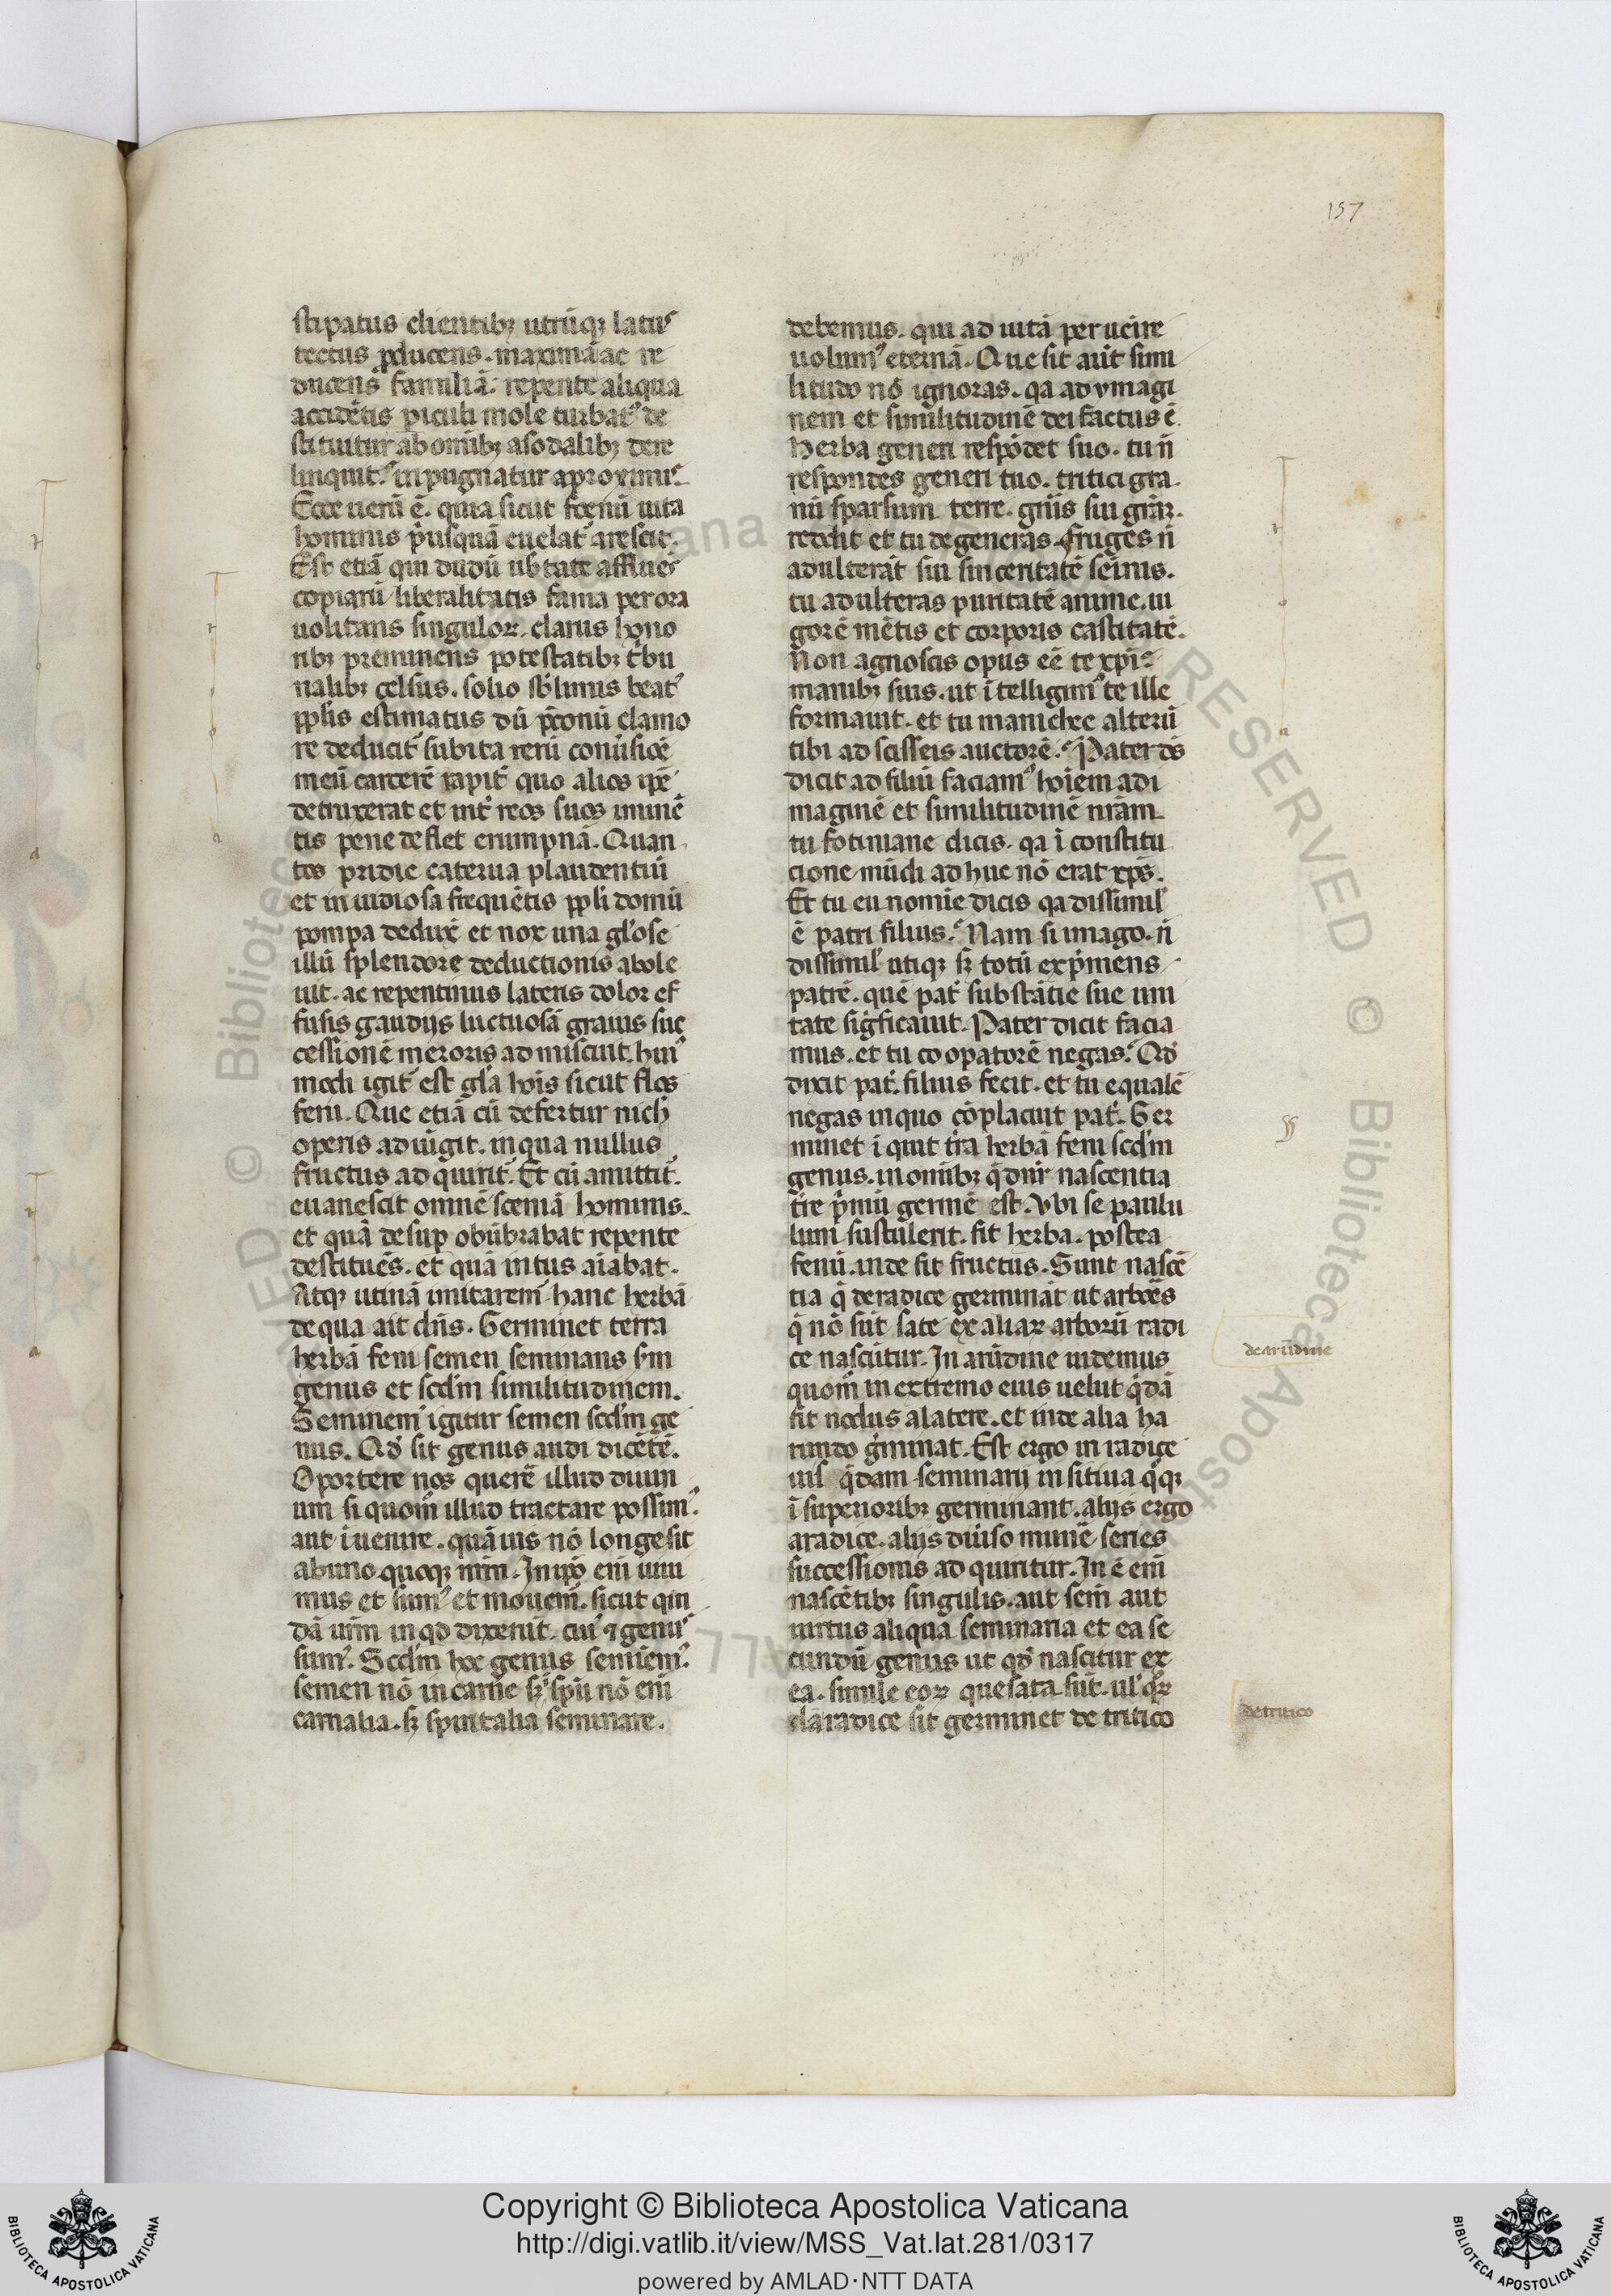 157
stipatus clientibꝫ utrūqꝫ latꝰ
tectus ꝓducens. maximā ac re
ducens familiā. repente aliqua
accidētis piculi mole turbatꝰ de
stituitur ab omībꝫ a sodalibꝫ dere
linquitꝰ inpugnatur a proximis
Ecce uerū ē. quia sicut foenū uita
hominis pͥusquā euelat᷑ arescit.
Est etiā qui dudū ub̓tate affluēs
copiarū liberalitatis fama per ora
uolitans singuloꝝ. clarus hono
ribꝫ preminens potestatibꝫ tͥbu
nalibꝫ celsus. solio sb̓limis beatꝰ
pplis estimatus dū p̄conū clamo
re deducit᷑ subita rerū conūsioē
in eū carcerē rapit᷑ quo alios ip̄e
detruxerat et int̓ reos suos iminē
tis pene deflet erumpnā. Quan
tos pridie caterua plaudentiū
et inuidiosa frequētis ppli domū
pompa dedux̄ et nox una gl̓ose
illū splendore deductionis abole
uit. ac repentinus lateris dolor ef
fusis gaudijs luctuosā grauis suc
cessionē meroris admiscuit. huiꝰ
modi igit᷑ est gl̓a hoīs sicut flos
feni. Que etiā cū defertur nich̓
operis aduīgit. in qua nullus
fructus adquirit᷑. Et cū amittit᷑.
euanescit omnē sceniā hominis.
et quā desup obūbrabat repente
destituēs. et quā intus aīabat.
Atqꝫ utinā imitarem᷑ hanc herbā
de qua ait dn̄s. Germinet terra
herbā feni semen seminans s̓m
genus et scd̓m similitudinem.
Seminemꝰ igitur semen scd̓m ge
nus. Qd̓ sit genus audi dicētē.
Oportere nos querē illud diuin
um si quom̄ illud tractare possimꝰ
aut īuenire. quāuis nō longe sit
ab uno quoqꝫ nr̄m. In ip̄o eni uiui
mus et sumꝰ et mouemꝰ. sicut qui
dā ur̄m in qd̓ dixerūt. cuiꝰ ⁊ genꝰ
sumꝰ. Scd̓m hoc genus semiemꝰ.
semen nō in carne sꝫ spū nō eni
carnalia. sꝫ spiritalia seminare.
debemus. qui ad uitā peruēire
uolumꝰ eternā. Que sit aūt simi
litudo nō ignoras. qa ad ymagi
nem et similitudinē dei factus ē.
Herba generi respōdet suo. tu n̄
respondes generi tuo. tritici gra
nū sparsum terre. gn̄is sui grām.
reddit et tu degeneras. fruges n̄
adulterāt sui sinceritatē seīnis.
tu adulteras puritatē anime. ui
gorē mētis et corporis castitatē.
Non agnoscis opus eē te xpi
manibꝫ suis. ut ītelligimꝰ te ille
formauit. et tu manichee alterū
tibi adscisseis auctorē. Pater ds̄
dicit ad filiū faciamꝰ hoīem ad i
maginē et similitudinē nr̄am
tu fotiniane dicis. qa ī constitu
cione mūdi adhuc nō erat xps̄.
Et tu eunomie dicis qa dissimil̓
ē patri filius. Nam si imago. n̄
dissimil̓ utiqꝫ sꝫ totū expͥmens
patrē. quē pat̓ substātie sue uni
tate sigͥficauit. Pater dicit facia
mus. et tu coopatorē negas. Qd̓
dixit pat̓. filius fecit. et tu equalē
negas in quo cōplacuit pat̓. Ger
minet īquit tr̄a herbā feni scd̓m
genus. in omībꝫ q̄ dn̄r nascentia
tr̄e pͥmū germē est. Vbi se paulu
lum sustulerit. fit herba. postea
fenū. inde fit fructus. Sunt nascē
tia q̄ de radice germināt ut arbores
q̄ nō sūt sate ex aliaꝝ arborū radi
ce nascūtur. In arūdine uidemus
quom̄ in extremo eius uelut q̄dā
fit nodus a latere. et inde alia ha
rundo gͥminat. Est ergo in radice
uis q̄dam seminarij insitiua q̄qꝫ
ī superioribꝫ germinant. alijs ergo
a radice. alijs diuiso munē series
successionis adquiritur. In ē eni
nascētibꝫ singulis. aut sem̄ aut
uirtus aliqua seminaria et ea se
cundū genus ut qd̓ nascitur ex
ea. simile eoꝝ que sata sūt. ul̓ qͦꝝ
ela radice sit germinet de tritico
de arūdine
de tritico
Copyright © Biblioteca Apostolica Vaticana
http://digi.vatlib.it/view/MSS_Vat.lat.281/0317
powered by AMLAD·NTT DATA
BIBLIOTECA APOSTOLICA VATICANA
BIBLIOTECA APOSTOLICA VATICANA